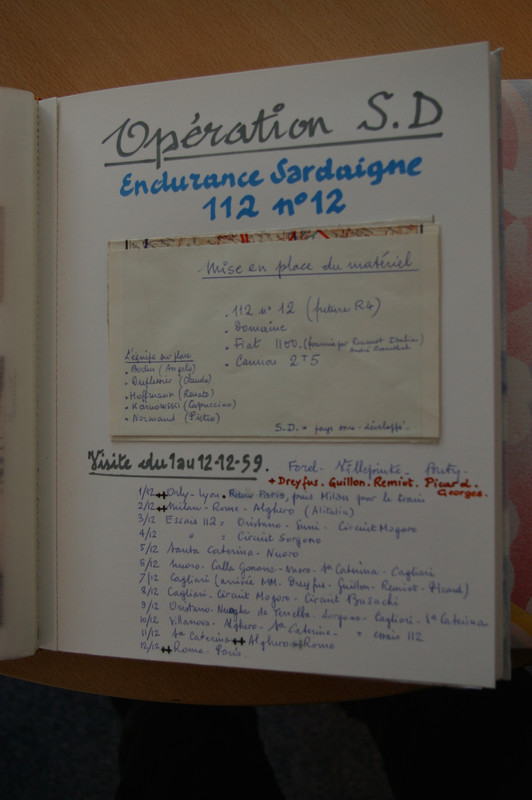 Opération S.D
Endurance Sardaigne
112 n°12
Mise en place du matériel
. 112 n° 12 (future R4)
. Domaine
. Fiat 1100. (fournie par Renault Italia)
. Camion 2T5
L'équipe sur place
. Bodin (Angelo)
. Duflestier (Claudio)
. Hoffmann (Renato)
. Karnowski (Capuccino)
. Normand (Pietro)
S.D. = pays sous-développé.
Visite du 1 au 12-12-59. Ford - Villepointe - Autry -
+ Dreyfus. Guillon. Remiot. Picard.
Georges.
1/12 Orly - Lyon. Retour Paris, puis Milan par le train
2/12 Milan - Rome - Alghero (Alitalia)
3/12 Essais 112 = Oristano - Simi - Circuit Mogoro
4/12 " = Circuit Sorgono
5/12 Santa Caterina - Nuoro
6/12 Nuoro - Calla Gonone - Nuoro - Sta Caterina - Cagliari
7/12 Cagliari (arrivée MM. Dreyfus - Guillon - Remiot - Picard)
8/12 Cagliari - Circuit Mogoro - Circuit Busachi
9/12 Oristano - Nuraghe de - Sorgono - Cagliari - Sta Caterina
10/12 Villanova - Alghero - Sta Caterina - " essais 112
11/12 Sta Caterina Alghero Rome
12/12 Rome - Paris.